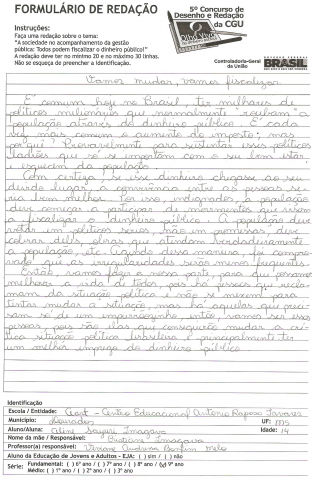 FORMULÁRIO DE REDAÇÃO
5º Concurso de
Desenho e Redação
da CGU
Instruções:
Faça uma redação sobre o tema:
"A sociedade no acompanhamento da gestão
pública: Todos podem fiscalizar o dinheiro público!"
A redação deve ter no mínimo 20 e no máximo 30 linhas.
Não se esqueça de preencher a identificação.
Controladoria-Geral
da União
BRASIL
Vamos mudar, vamos fiscalizar
É comum hoje no Brasil, ter milhares de
políticos milionários que normalmente roubam a
população através do dinheiro público. É cada
vez mais comum o aumento do imposto; mas
por quê? Provavelmente para sustentar esses políticos
ladrões que só se importam com o seu bem estar,
e esquecem da população.
Com certeza, se esse dinheiro chegasse ao seu
devido lugar, a convivência entre as pessoas se-
ria bem melhor. Por isso, indignados, a população
deve começar a participar de movimentos que visam
a fiscalizar o dinheiro público. A população deve
votar em políticos sérios, não em promessas, deve
cobrar deles, obras que atendam verdadeiramente
a população, etc. Agindo dessa maneira, foi compro-
vado que as irregularidades serão menos frequentes.
Então, vamos fazer a nossa parte, para que possamos
melhorar a vida de todos, pois há pessoas que recla-
mam da situação política e não se mexem para
tentar mudar a situação, mas há aquelas que preci-
sam só de um empurrãozinho, então, vamos ser essas
pessoas, pois são elas que conseguirão mudar a crí-
tica situação política brasileira e principalmente ter
um melhor emprego do dinheiro público.
Identificação
Escola / Entidade: Ceart - Centro Educacional Antonio Raposo Tavares
Município: Dourados UF: MS
Aluno/Aluna: Aline Sayuri Imagava Idade: 14
Nome da mãe / Responsável: Cristiane Imagava
Professor(a) responsável: Viviane Bonfim Melo
Aluno da Educação de Jovens e Adultos - EJA: ( ) sim / ( ) não
Série: Fundamental: ( ) 6º ano / ( ) 7º ano / ( ) 8º ano / (x) 9º ano
Médio: ( ) 1º ano / ( ) 2º ano / ( ) 3º ano